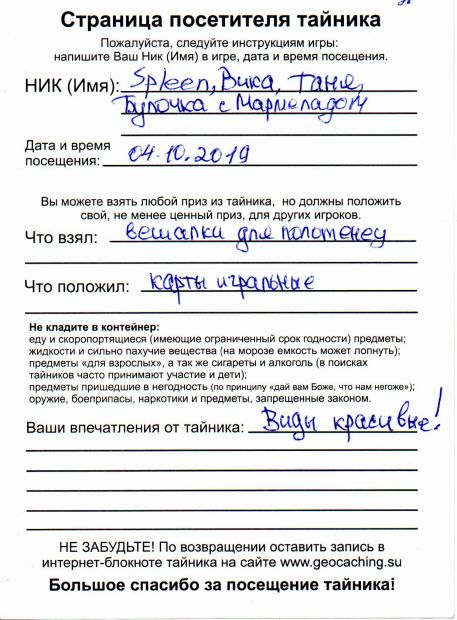 Страница посетителя тайника
Пожалуйста, следуйте инструкциям игры:
напишите Ваш Ник (Имя) в игре, дата и время посещения.
НИК (Имя): Spleen, Вика, Таня,
Булочка с Мармеладом
Дата и время
посещения: 04.10.2019
Вы можете взять любой приз из тайника, но должны положить
свой, не менее ценный приз, для других игроков.
Что взял: вешалки для полотенец
Что положил: карты игральные
Не кладите в контейнер:
еду и скоропортящиеся (имеющие ограниченный срок годности) предметы;
жидкости и сильно пахучие вещества (на морозе емкость может лопнуть);
предметы «для взрослых», а так же сигареты и алкоголь (в поисках
тайников часто принимают участие и дети);
предметы пришедшие в негодность (по принципу «дай вам Боже, что нам негоже»);
оружие, боеприпасы, наркотики и предметы, запрещенные законом.
Ваши впечатления от тайника: Виды красивые!
НЕ ЗАБУДЬТЕ! По возвращении оставить запись в
интернет-блокноте тайника на сайте www.geocaching.su
Большое спасибо за посещение тайника!